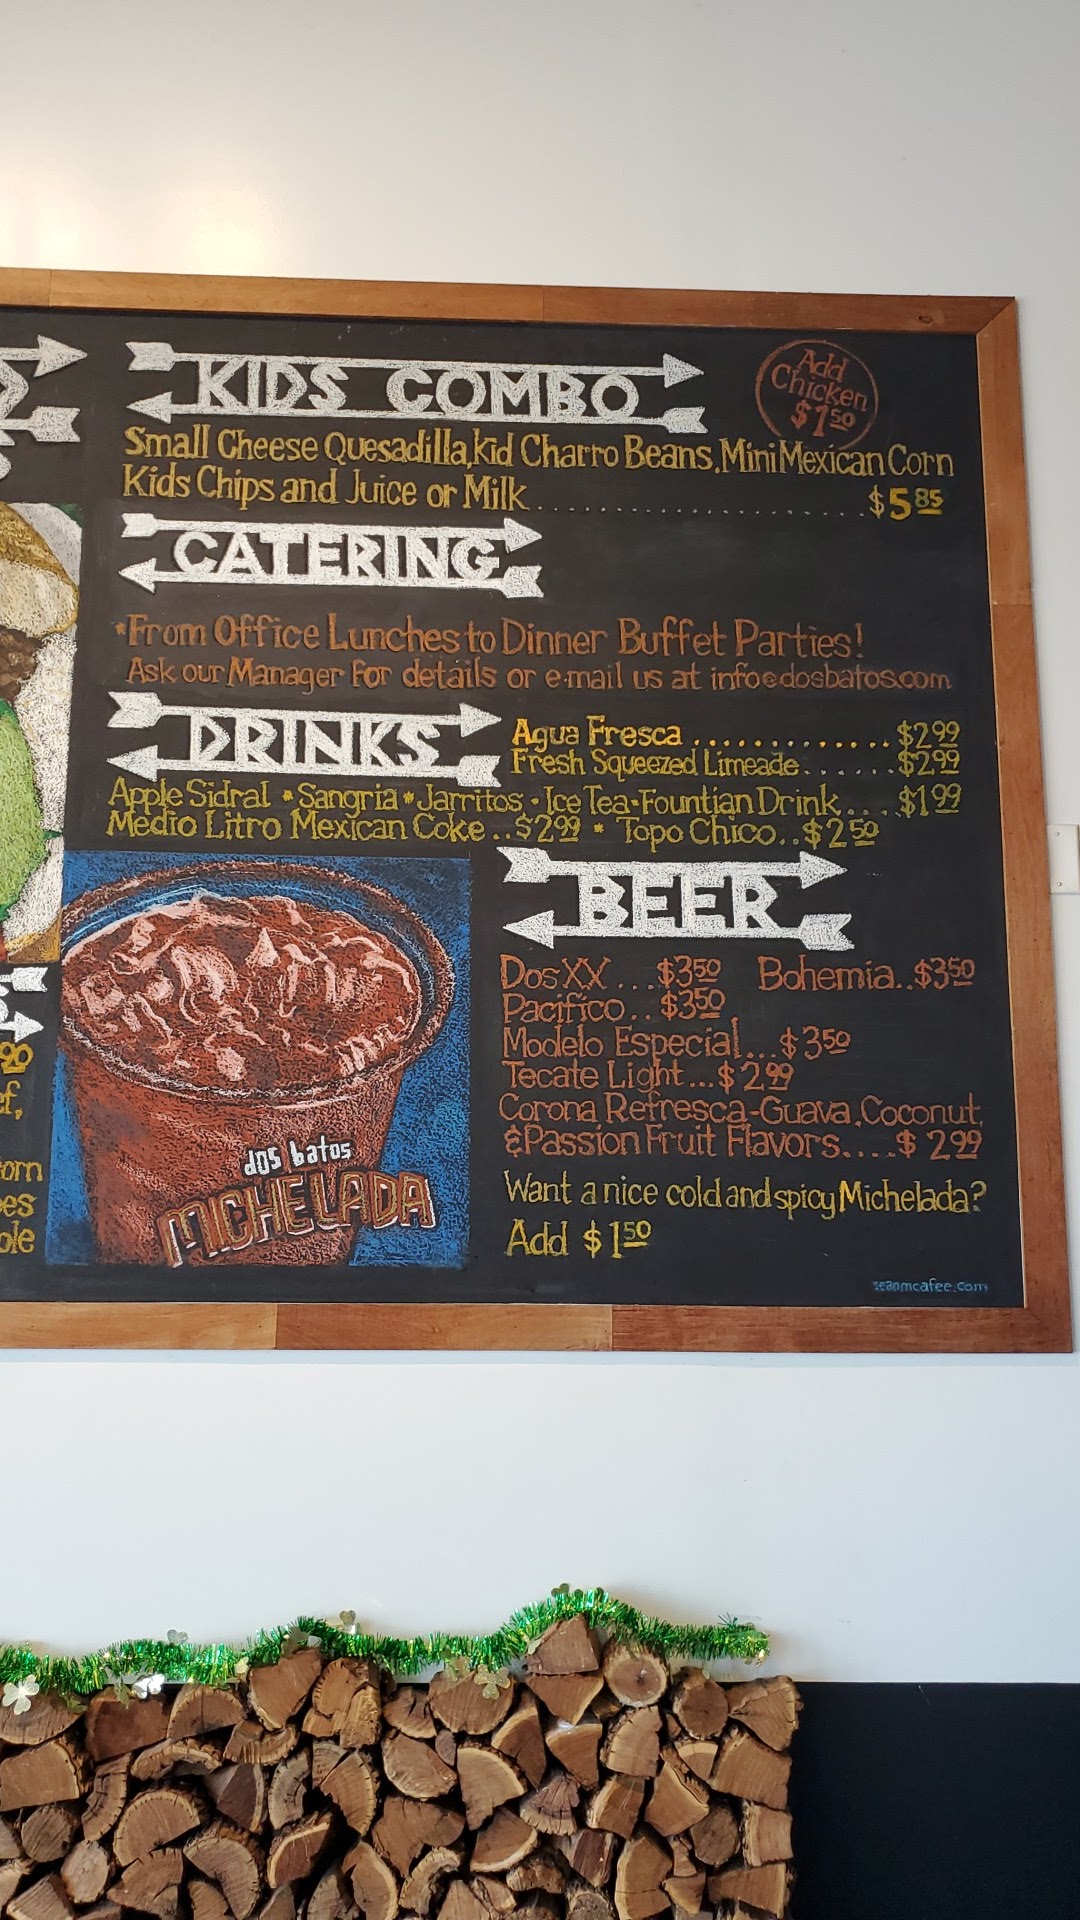 KIDS COMBO
Add
Chicken
$1 50
Small Cheese Quesadilla, Kid Charro Beans, Mini Mexican Corn
Kids Chips and Juice or Milk....................$5 85
CATERING
*From Office Lunches to Dinner Buffet Parties!
Ask our Manager For details or e-mail us at info@dosbatos.com
DRINKS
Agua Fresca .............$2 99
Fresh Squeezed Limeade......$2 99
Apple Sidral * Sangria * Jarritos - Ice Tea - Fountian Drink....$1 99
Medio Litro Mexican Coke..$2 99 * Topo Chico..$2 50
BEER
Dos XX ...$3 50 Bohemia..$3 50
Pacifico.. $3 50
Modelo Especial...$3 50
Tecate Light...$2 99
Corona Refresca-Guava, Coconut,
& Passion Fruit Flavors....$2 99
Want a nice cold and spicy Michelada?
Add $1 50
dos batos
MICHELADA
90
ef,
orn
oes
ole
seanmcafee.com